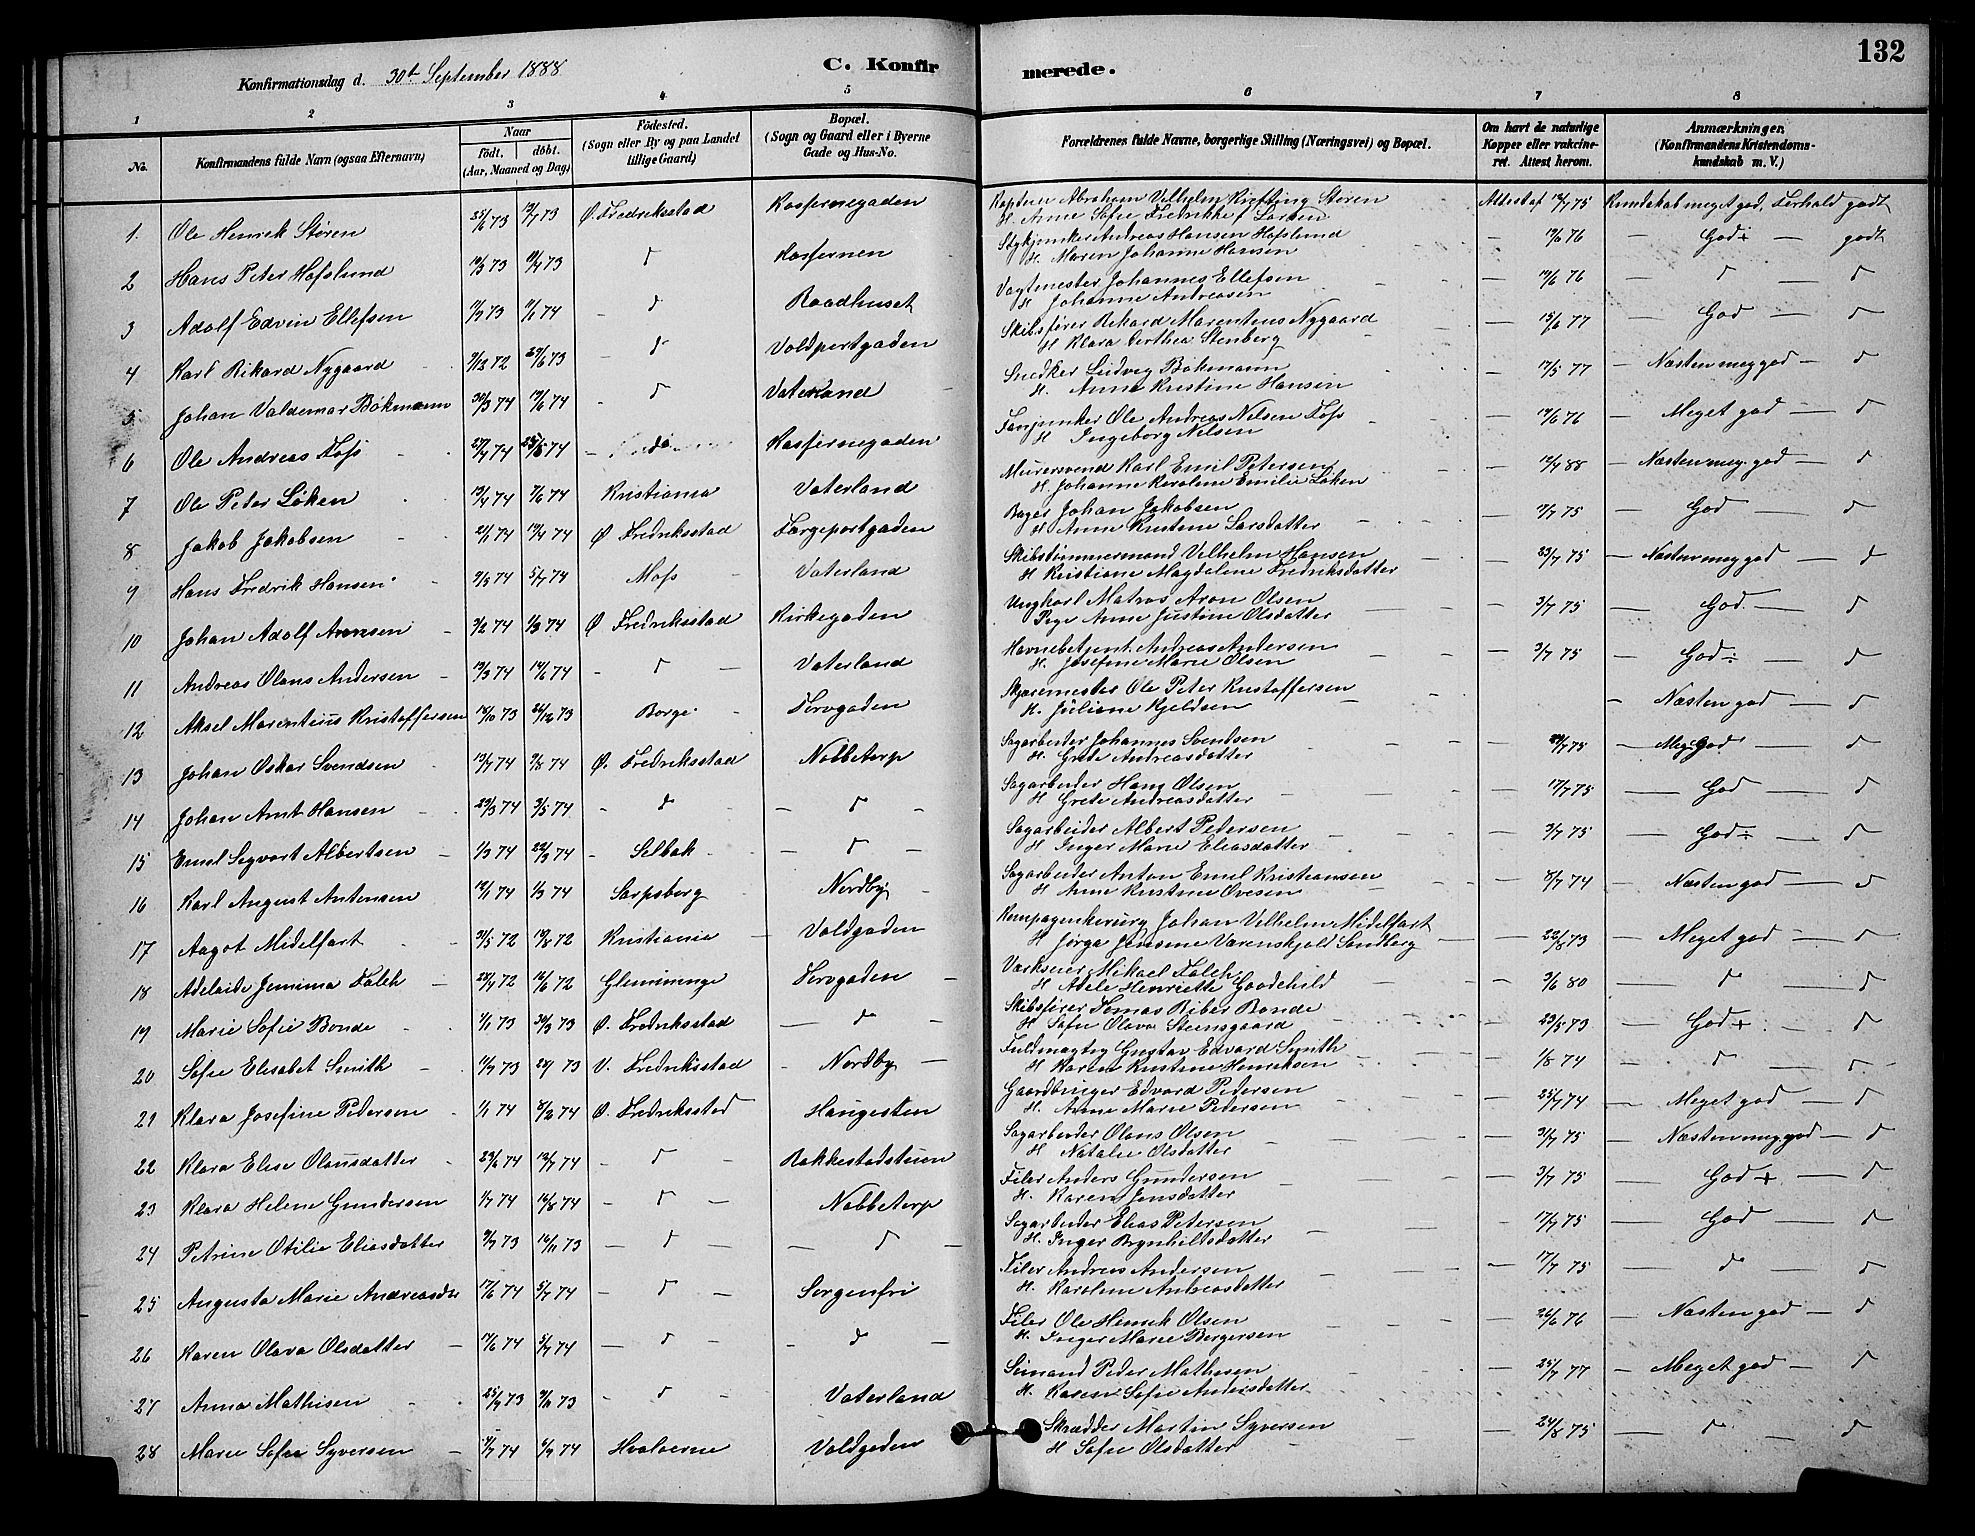 132
Konfirmationsdag d. 30te September 1888
C. Konfirmerede.
1 2 3 4 5 6 7 8
No. Konfirmandens fulde Navn (ogsaa Efternavn) Naar födt, döbt. (Aar, Maaned og Dag) Födested. (Sogn eller By og paa Landet tillige Gaard) Bopæl. (Sogn og Gaard eller i Byerne Gade og Hus-No. Forældrenes fulde Navne, borgerlige Stilling (Næringsvei) og Bopæl. Om havt de naturlige Kopper eller vakcineret. Attest herom. Anmærkninger. (Konfirmandens Kristendomskundskab m. V.)
1. Ole Henrik Støren 25/6 73 13/7 73 Ø. Fredriksstad Kasfernegaden Kaptein Abraham Vilhelm Støren H. Anne Sofie Fredrikke f Larsen Attestaf 75 Kundskab meget god, Forhold godt
2 Hans Peter Hofslund 73 73 d Kasfernen Stykjunker Andreas Hansen Hofslund H. Maren Johanne Hansen — 76 — God÷ — godt
3 Adolf Edvin Ellefsen 73 11/6 74 — d Raadhuset Vagtmester Johannes Ellefsen H Johanne Andreasen — 76 — d d
4 Karl Rikard Nygaard 9/12 72 29/6 73 — d Voldportgaden Skibsfører Rikard Marentius Nygaard H Klara Berthea Stenberg — 15/6 77 — God — d
5 Johan Valdemar Bökmann 30/3 74 74 — d Vaterland Snedker Ludvig Bökmann H. Anne Kristine Hansen — 17/5 77 — Næsten meg god — d
6 Ole Andreas Fosf 27/4 74 25/5 74 — do Kasfernegaden Fanejunker Ole Andreas Nilsen Fosf H Ingeborg Nilsen — 76 — Meget god — d
7 Ole Peter Løken 74 7/6 74 Kristiania Vaterland Murersvend Karl Emil Petersen H. Johanne Karoline Emilie Løken — 88 — Næsten meg. god — d
8 Jakob Jakobsen 21/1 74 74 Ø Fredriksstad Færgeportgaden Bager Johan Jakobsen H Anne Kristine Larsdatter — 75 — God — d
9 Hans Fredrik Hansen 74 5/7 74 Mosf Vaterland Skibstømmermand Vilhelm Hansen H Kristiane Magdalene Fredriksdatter — 23/7 75 — Næsten meg god — d
10 Johan Adolf Aronsen 9/2 74 1/3 74 Ø Fredriksstad Kirkegaden Ungkarl Matros Aron Olsen Pige Anne Justine Olsdatter — 3/7 75 — God — d
11 Andreas Olaus Andersen 74 14/6 74 — d — Vaterland Havnebetjent Andreas Andersen H. Josefine Marie Olsen — 3/7 75 — God÷ — d
12 Aksel Marentius Kristoffersen 73 26/12 73 Borge Torvgaden Ole Peter Kristoffersen H. Juliane Kjeldsen — Næsten god — d
13 Johan Oskar Svendsen 13/7 74 9/8 74 Ø. Fredriksstad Nabbetorp Sagarbeider Johannes Svendsen H. Grete Andreasdatter — 75 — Meg. god — d
14 Johan Arnt Hansen 29/3 74 3/5 74 — d — d — Sagarbeider Hans Olsen H Grete Andreasdatter — 17/7 75 — God — d
15 Emil Segvart Albertsen 1/3 74 22/3 74 — Selbak — d — Sagarbeider Albert Pedersen H Inger Marie Eliasdatter — 3/7 75 — God÷ — d
16 Karl August Antonsen 74 1/3 74 Sarpsborg Nordby — Sagarbeider Anton Emil Kristiansen H Anne Kristine Ovesen — 8/7 74 — Næsten god — d
17 Aagot Midelfart 31/5 72 72 Kristiania Voldgaden Kompagnikirurg Johan Vilhelm Midelfart H Jørga Jensine Varenskjold Sandberg — 22/8 73 — Meget god — d
18 Adelaide Jemima Falch 24/4 72 16/6 72 Glemminge Torvgaden — Værkseier Mikael Falch H Adele Henriette Goodchild — 3/6 80 — d — d
19 Marie Sofie Bonde 1/1 73 30/3 73 Ø. Fredriksstad — d — Skibsfører Tomas Riber Bonde H Sofie Olava Steensgaard — 23/5 73 — God+ — d
20 Sofie Elisabet Smith 73 73 V. Fredriksstad Nordby — Fuldmægtig Gustav Edvard Smith H Karen Kristine Henriksen — 1/8 74 — d — d
21 Klara Josefine Pedersen 1/1 74 8/2 74 Ø. Fredriksstad Haugesten Gaardbruger Edvard Pedersen H. Anne Marie Pedersen — 25/7 74 — Meget god — d
22 Klara Elise Olausdatter 23/6 74 74 — d Rakkestadsteien Sagarbeider Olaus Olsen H Natalie Olsdatter — 31/7 75 — Næsten meg god — d
23 Klara Helene Gundersen 74 16/8 74 — d — Nabbetorp Filer Anders Gundersen H. Karen Jensdatter — 3/7 75 — God+ — d
24 Petrine Otilie Eliasdatter 73 16/11 73 — d — — d — Sagarbeider Elias Petersen H. Inger Brynhiltsdatter — 17/7 75 — God — d
25 Augusta Marie Andreasdtr 17/6 74 5/7 74 — d — Sorgenfri Filer Andreas Andersen H. Karoline Andreasdatter — 17/7 75 — d — d
26 Karen Olava Olsdatter 17/6 74 5/7 74 — d — — d — Filer Ole Henrik Olsen H. Inger Marie Bergersen — 26/6 76 — Næsten god — d
27 Anna Mathisen 25/7 73 73 — d — Vaterland Sømand Peder Mathisen H. Karen Sofie Andersdatter — 25/7 77 — Meget god — d
28 Marie Sofie Syversen 74 74 Hvaløerne Voldgaden Skrædder Martin Syversen H Sofie Olsdatter — 24/8 75 — d — d